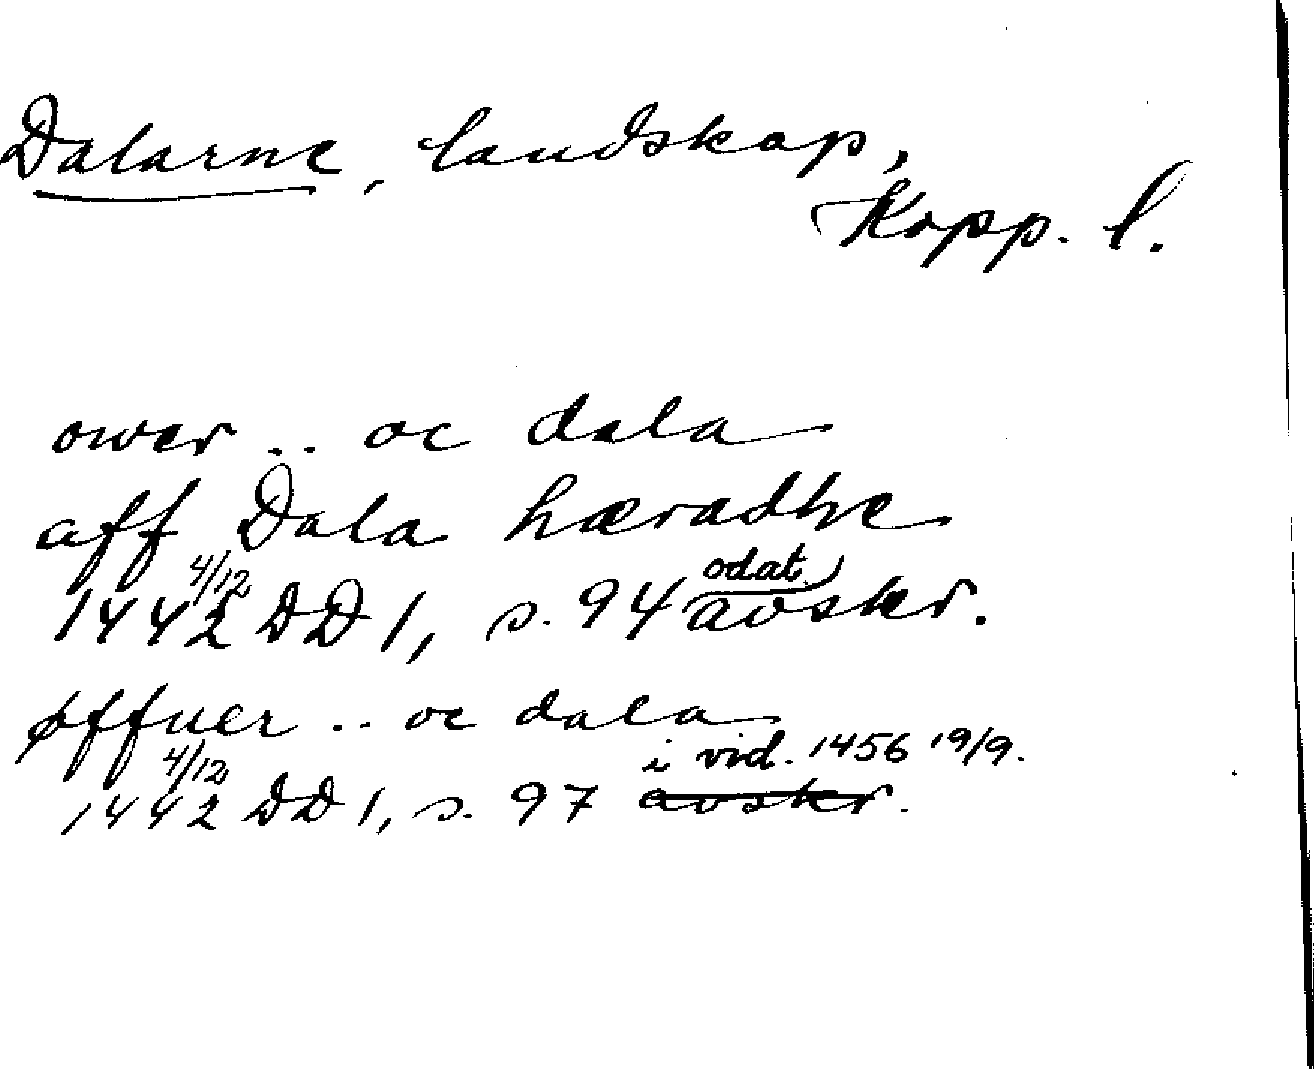 Dalarne, landskap,
Kopp. l.
ower .. oc dala
aff Dala hæradhe
1442 4/12 DD 1, s. 94 odat. avskr.
øffuer .. oc dala
1442 4/12 DD 1, s. 97 avskr. i vid. 1456 19/9.